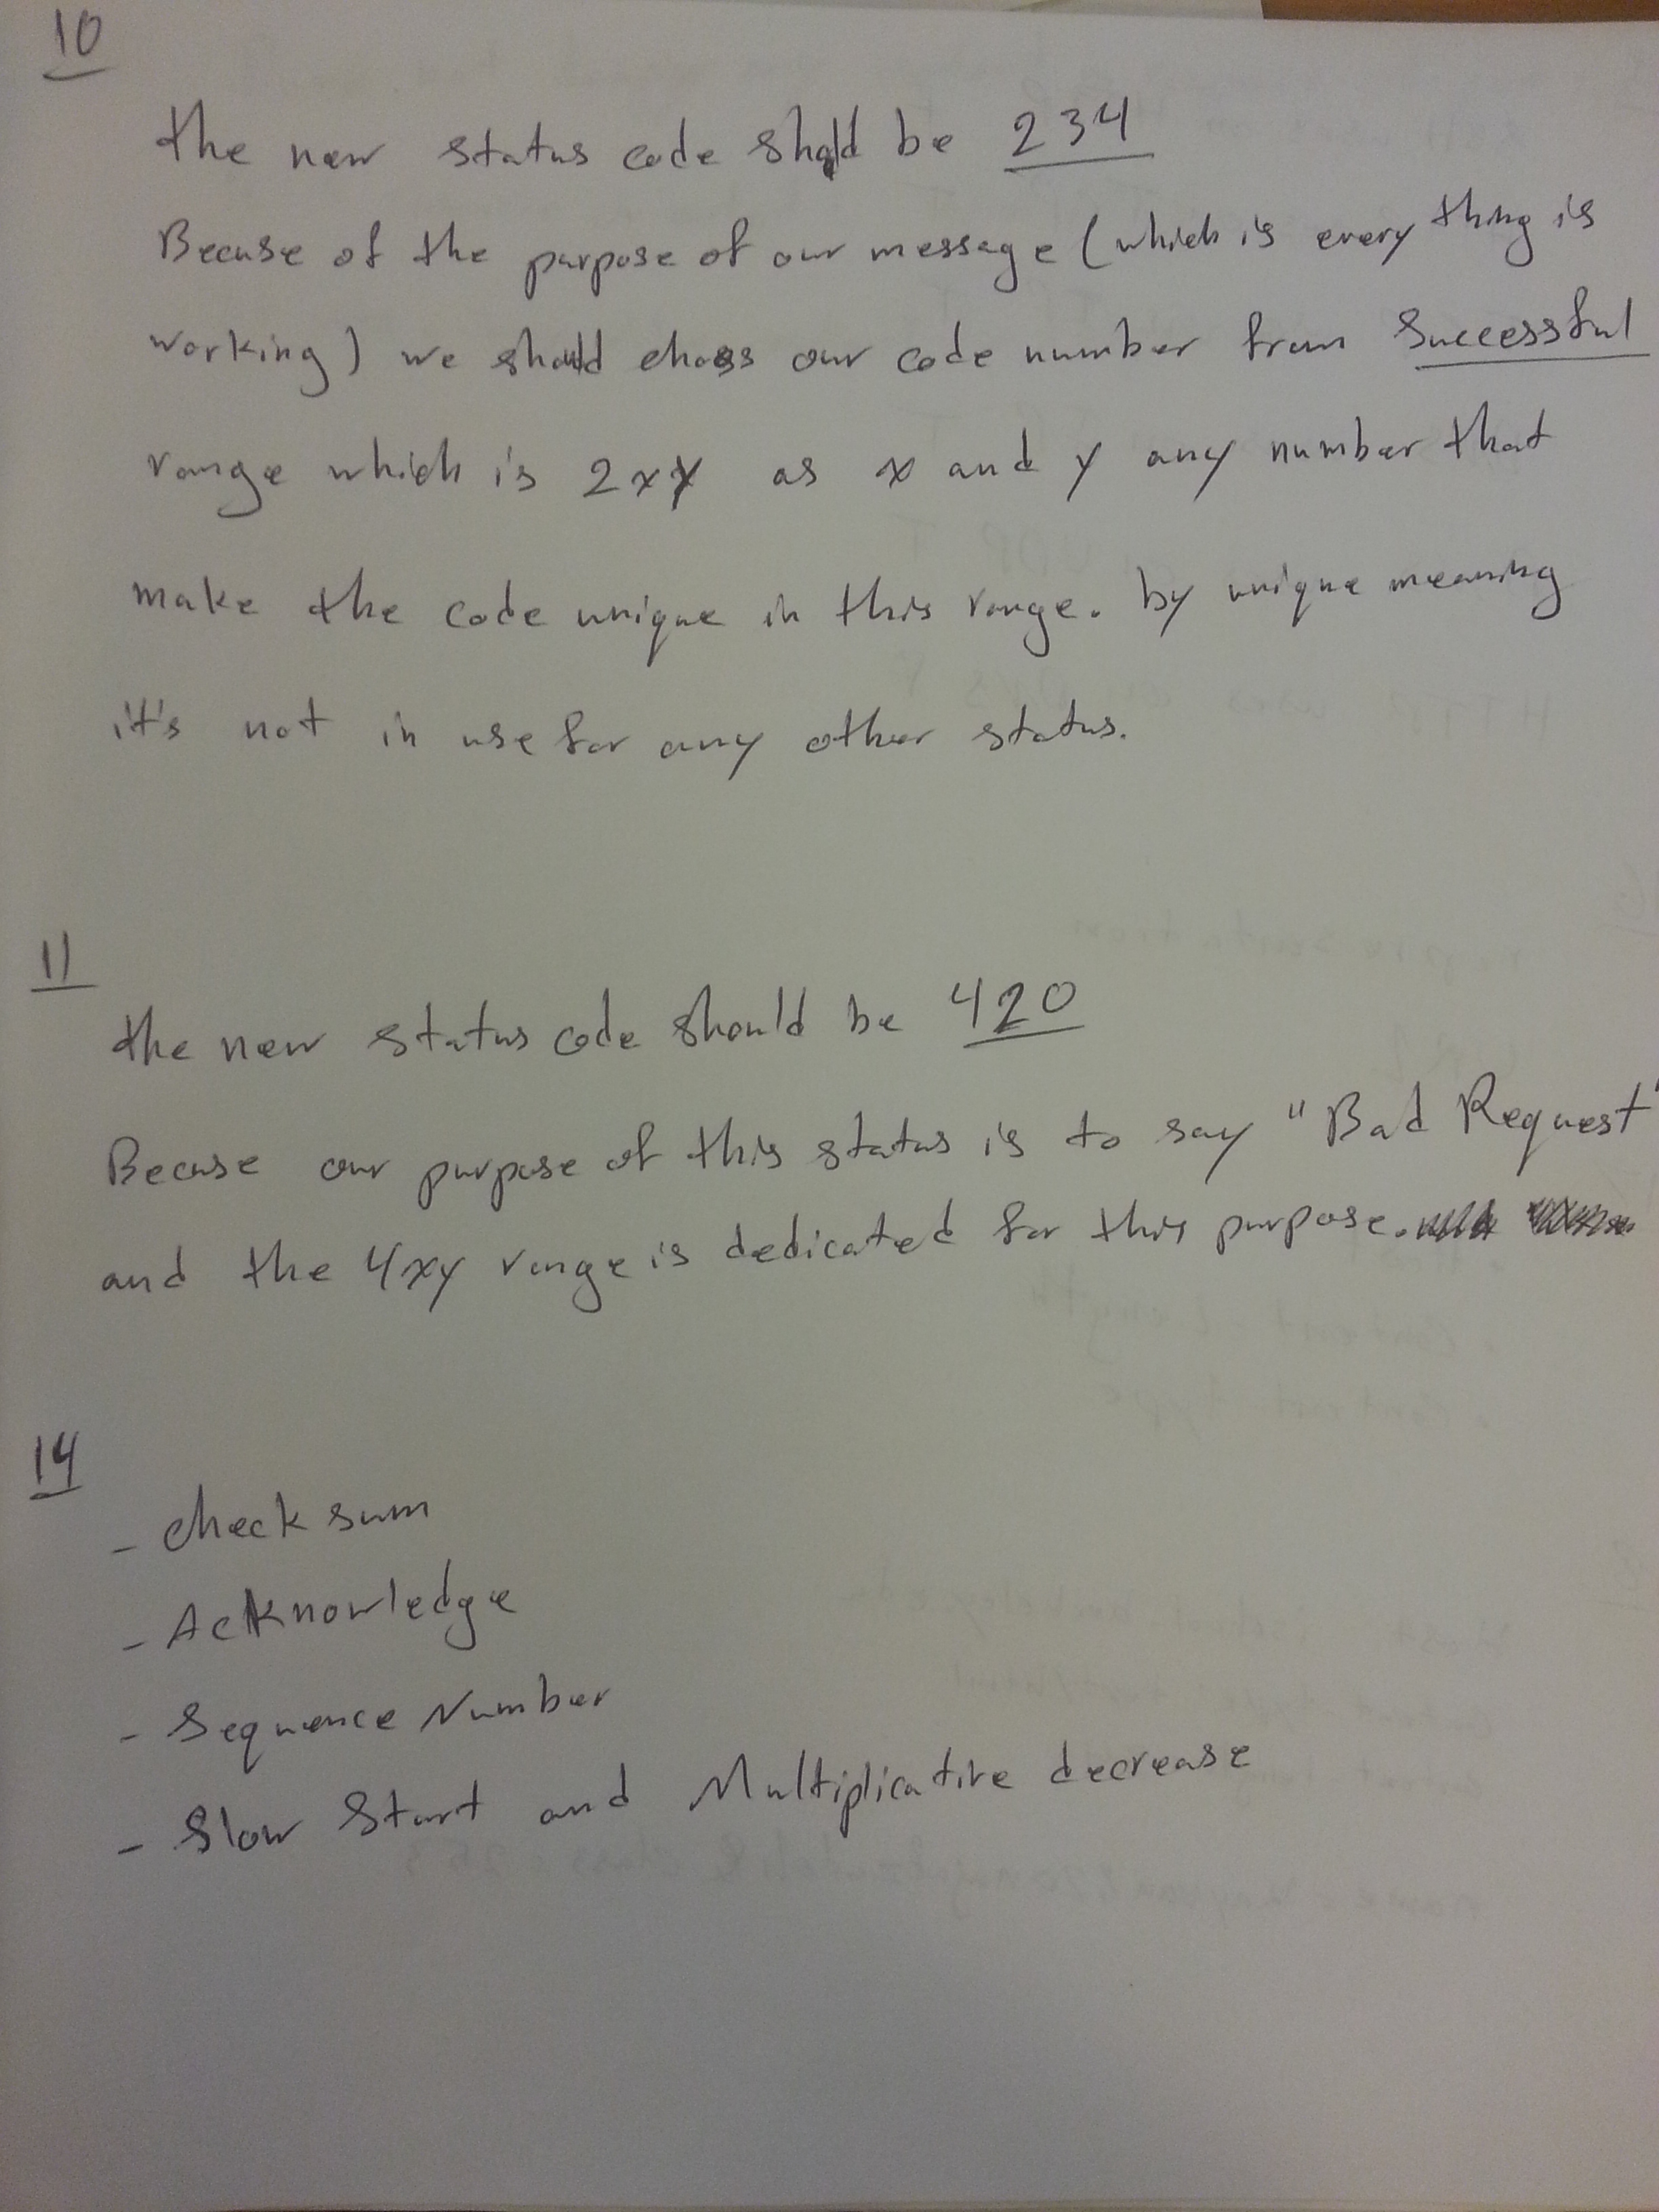 10
the new status code shold be 234
Becuse of the purpose of our message (which is every thing is
working) we should choss our code number from Successful
range which is 2xy as x and y any number that
make the code unique in this range. by unique meaning
it's not in use for any other status.
11
the new status code should be 420
Becuse our purpose of this status is to say "Bad Request"
and the 4xy range is dedicated for this purpose.
14
- check sum
- Acknowledge
- Sequence Number
- Slow Start and Multiplicative decrease